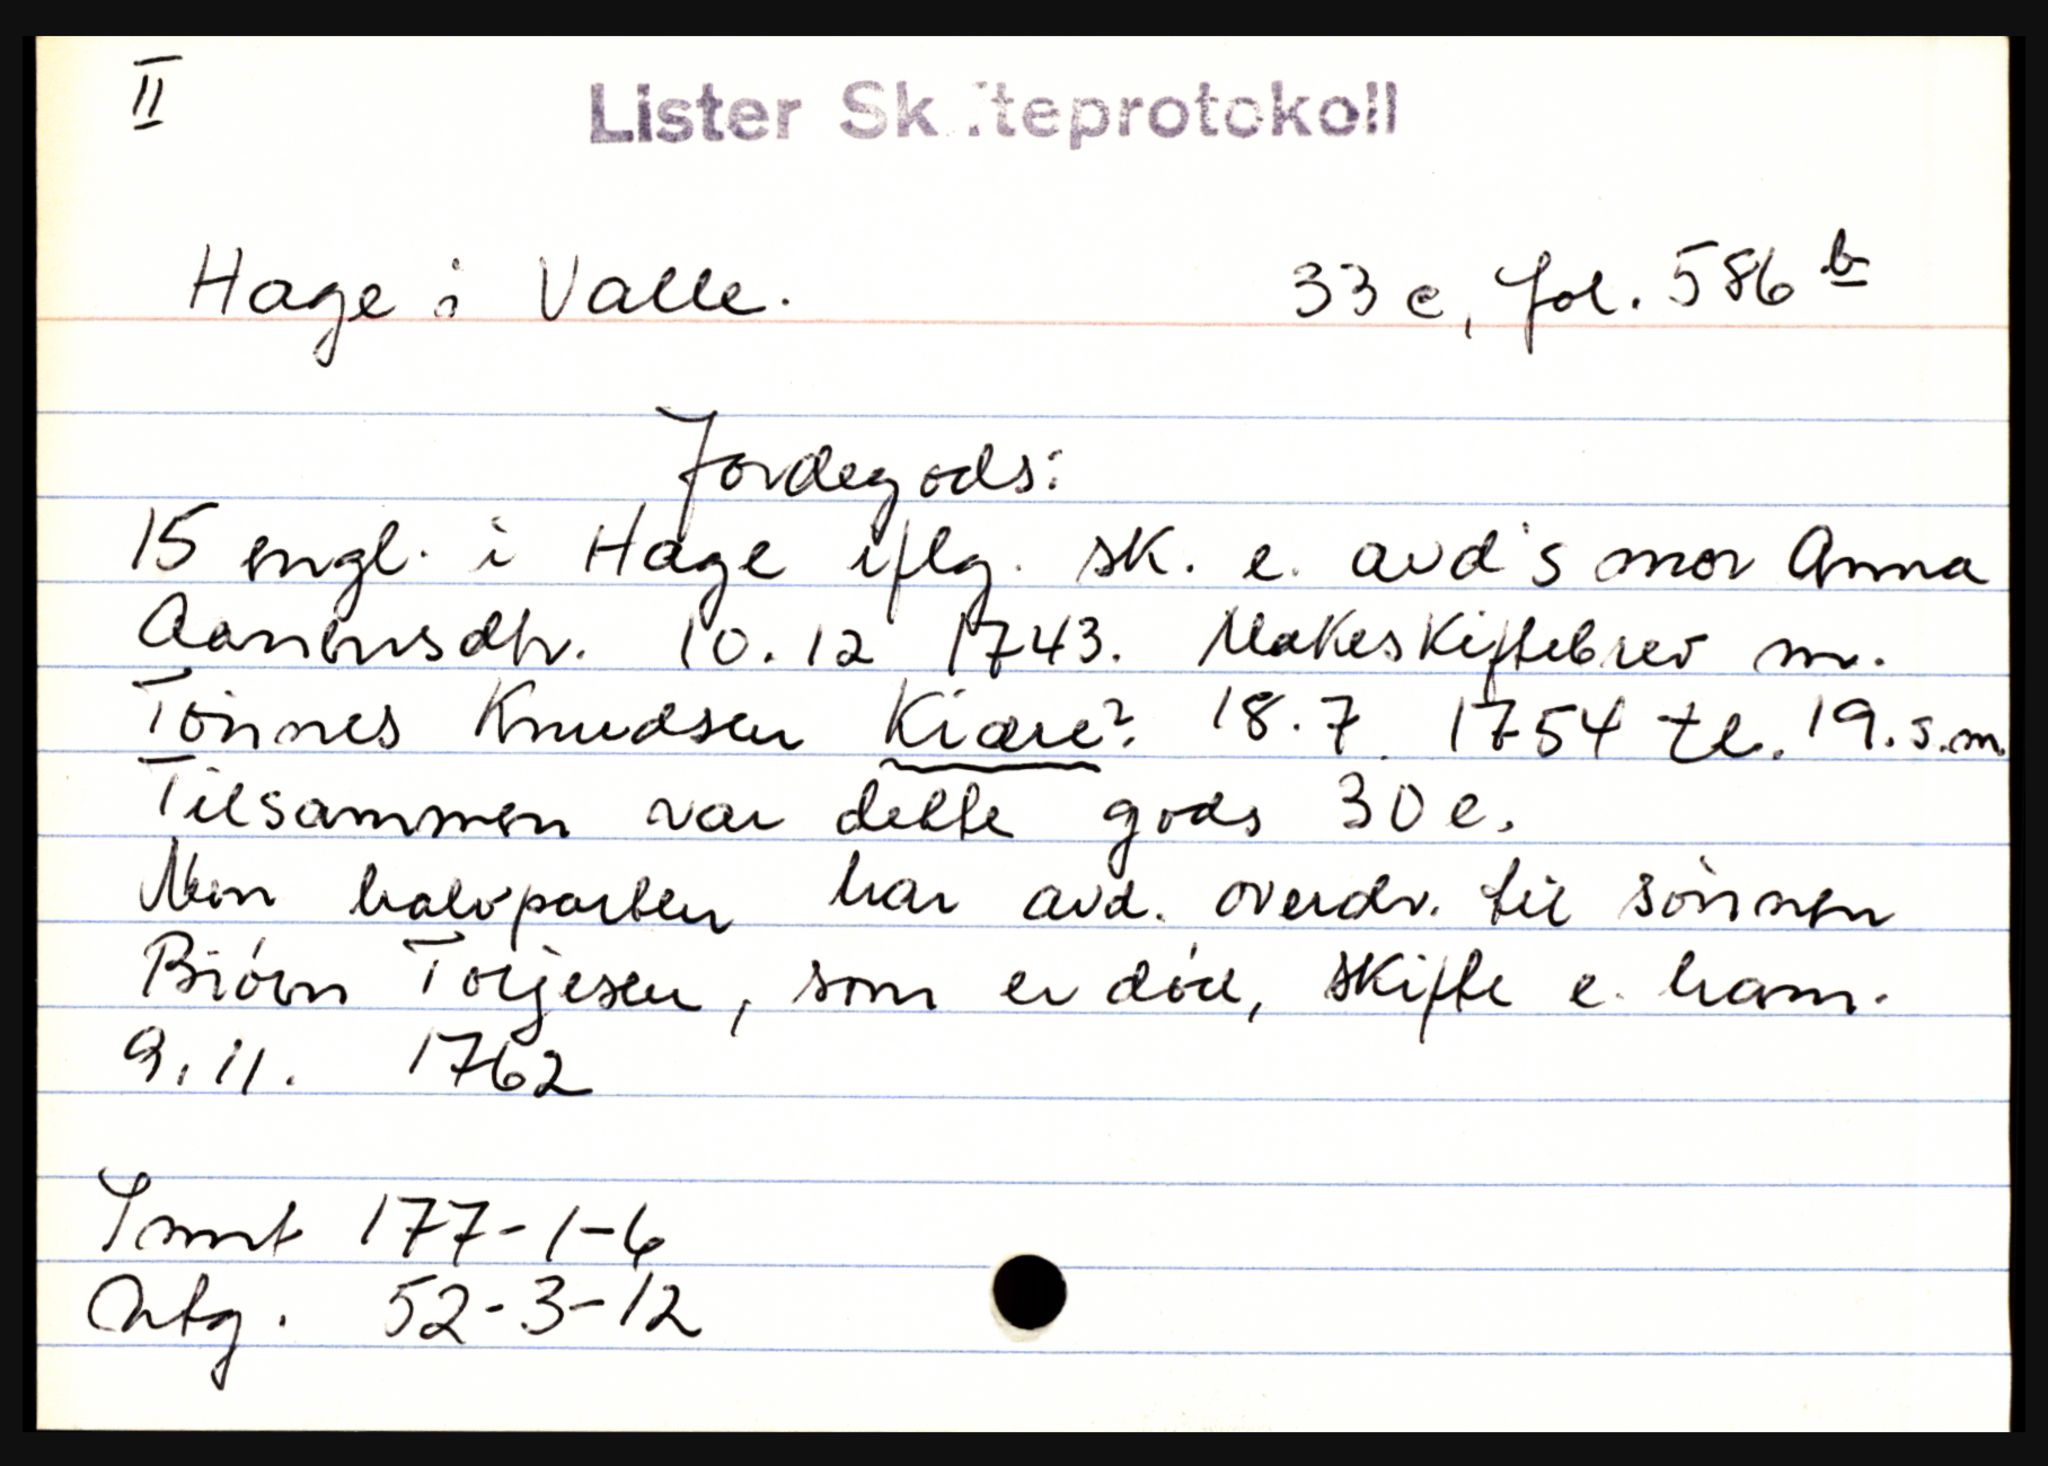 II
Lister Skifteprotokoll
Hage i Valle. 33 c, fol. 586 b
Jordegods:
15 engl. i Hage iflg. sk. e. avd's mor Anna
Aanensdtr. 10.12 1743. Makeskiftebrev m.
Tönnes Knudsen Kiære? 18.7. 1754 tl. 19. s.m.
Tilsammen var dette gods 30 e.
Men halvparten har avd. overdr. til sönnen
Biörn Torjesen, som er död, skifte e. ham.
9.11. 1762
Innt 177-1-6
Utg. 52-3-12